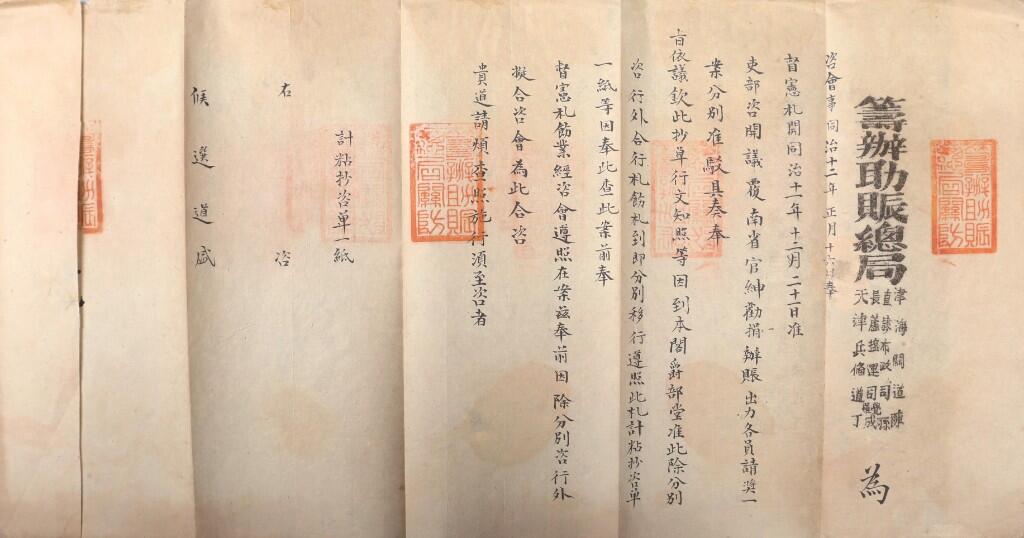 籌辦助賑總局
津海關道陳
直隸布政司孫
長蘆鹽運司成
天津兵備道丁
為
咨會事同治十二年正月十六日奉
督憲札開同治十一年十二月二十一日准
吏部咨開議覆南省官紳勸捐辦賑出力各員請獎一
案分別准駁具奏奉
旨依議欽此抄單行文知照等因到本閣爵部堂准此除分別
咨行外合行札飭札到即分別移行遵照此札計粘抄咨單
一紙等因奉此查此案前奉
督憲札飭業經咨會遵照在案茲奉前因除分別咨行外
擬合咨會為此合咨
貴道請煩查照施行須至咨者
計粘抄咨單一紙
右咨
候選道盛